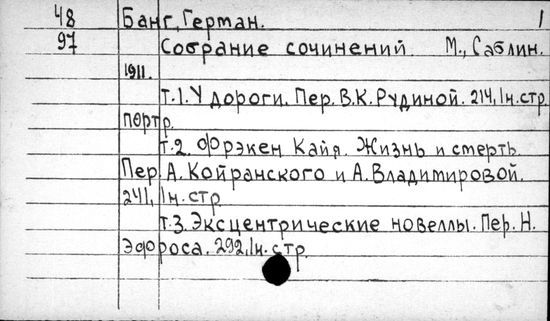 48 Банг, Герман. 1
97 Собрание сочинений М., Саблин.
1911.
т.1. У дороги. Пер. В.К. Рудиной. 214, 1н.стр.
портр.
т.2. Фрэкен Кайя. Жизнь и смерть.
Пер. А. Койранского и А. Владимировой.
241, 1н.стр
т.3. Эксцентрические новеллы. Пер. Н.
Эфроса. 292, 1н.стр.